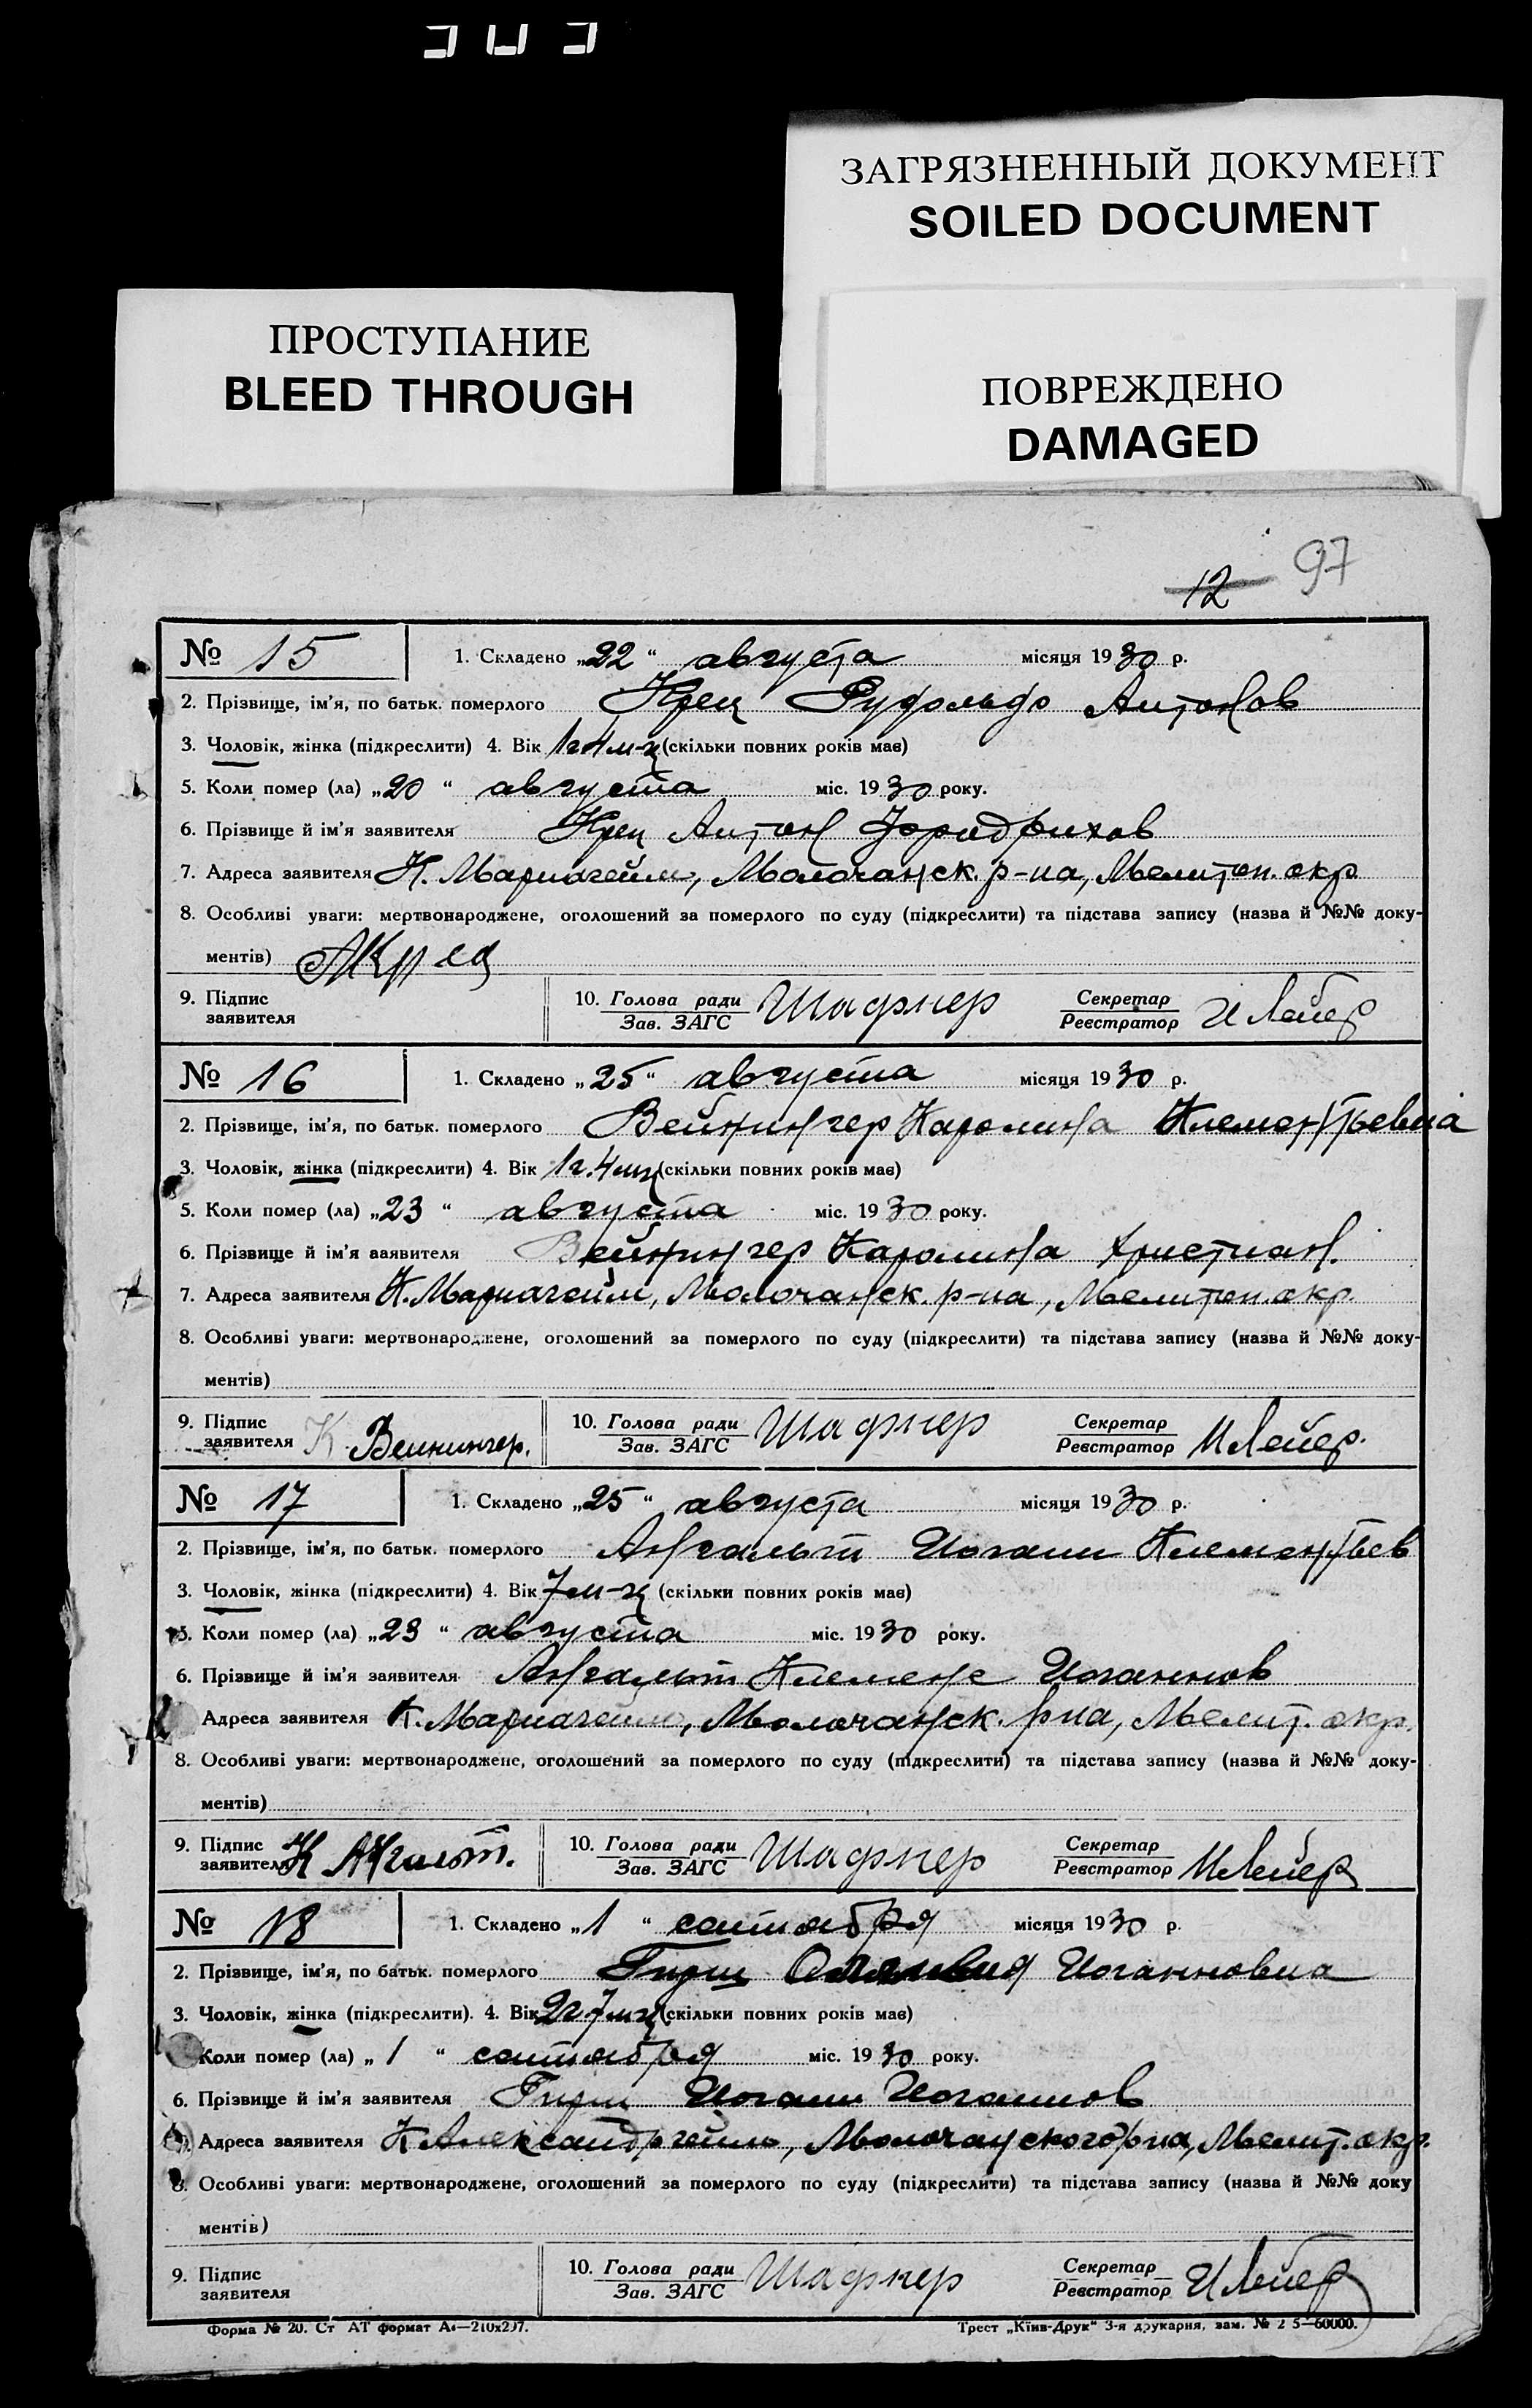 ЗАГРЯЗНЕННЫЙ ДОКУМЕНТ
SOILED DOCUMENT
ПРОСТУПАНИЕ
BLEED THROUGH
ПОВРЕЖДЕНО
DAMAGED
12 97
№ 15 1. Складено „22“ августа місяця 1930 р.
2. Прізвище, ім'я, по батьк. померлого Крец Рудольф Антонов
3. Чоловік, жінка (підкреслити) 4. Вік 1г 4 м-ц (скільки повних років має)
5. Коли помер (ла) „20“ августа міс. 1930 року.
6. Прізвище й ім'я заявителя Крец Антон Фридрихов
7. Адреса заявителя К. Мариагейм, Молочанск. р-на, Мелитоп. окр
8. Особливі уваги: мертвонароджене, оголошений за померлого по суду (підкреслити) та підстава запису (назва й №№ доку-
ментів) А Крец
9. Підпис заявителя 10. Голова ради Зав. ЗАГС Шафнер Секретар Реєстратор И Лейер
№ 16 1. Складено „25“ августа місяця 1930 р.
2. Прізвище, ім'я, по батьк. померлого Вейнингер Каролина Клементьевна
3. Чоловік, жінка (підкреслити) 4. Вік 1г. 4 мц (скільки повних років має)
5. Коли помер (ла) „23“ августа міс. 1930 року.
6. Прізвище й ім'я заявителя Вейнингер Каролина Христиан.
7. Адреса заявителя К. Мариагейм, Молочанск. р-на, Мелитоп. окр.
8. Особливі уваги: мертвонароджене, оголошений за померлого по суду (підкреслити) та підстава запису (назва й №№ доку-
ментів)
9. Підпис заявителя К Веннингер. 10. Голова ради Зав. ЗАГС Шафнер Секретар Реєстратор И Лейер.
№ 17 1. Складено „25“ августа місяця 1930 р.
2. Прізвище, ім'я, по батьк. померлого Ангальт Иоганн Клементьев
3. Чоловік, жінка (підкреслити) 4. Вік 7 м-ц (скільки повних років має)
5. Коли помер (ла) „23“ августа міс. 1930 року.
6. Прізвище й ім'я заявителя Ангальт Клеменс Иоганнов
Адреса заявителя К. Мариагейм, Молочанск. рна, Мелит. окр.
8. Особливі уваги: мертвонароджене, оголошений за померлого по суду (підкреслити) та підстава запису (назва й №№ доку-
ментів)
9. Підпис заявителя К Ангальт. 10. Голова ради Зав. ЗАГС Шафнер Секретар Реєстратор И Лейер
№ 18 1. Складено „1“ сентября місяця 1930 р.
2. Прізвище, ім'я, по батьк. померлого Гирш Иоганновна
3. Чоловік, жінка (підкреслити). 4. Вік 2г 7 мц (скільки повних років має)
Коли помер (ла) „1“ сентября міс. 1930 року.
6. Прізвище й ім'я заявителя Гирш Иоганн Иоганнов
Адреса заявителя К Александргейм, Молочанского рна, Мелит. окр.
8. Особливі уваги: мертвонароджене, оголошений за померлого по суду (підкреслити) та підстава запису (назва й №№ доку
ментів)
9. Підпис заявителя 10. Голова ради Зав. ЗАГС Шафнер Секретар Реєстратор И Лейер
Форма № 20. Ст АТ формат А4—210x297. Трест „Київ-Друк“ 3-я друкарня, зам. № 2 5—60000.